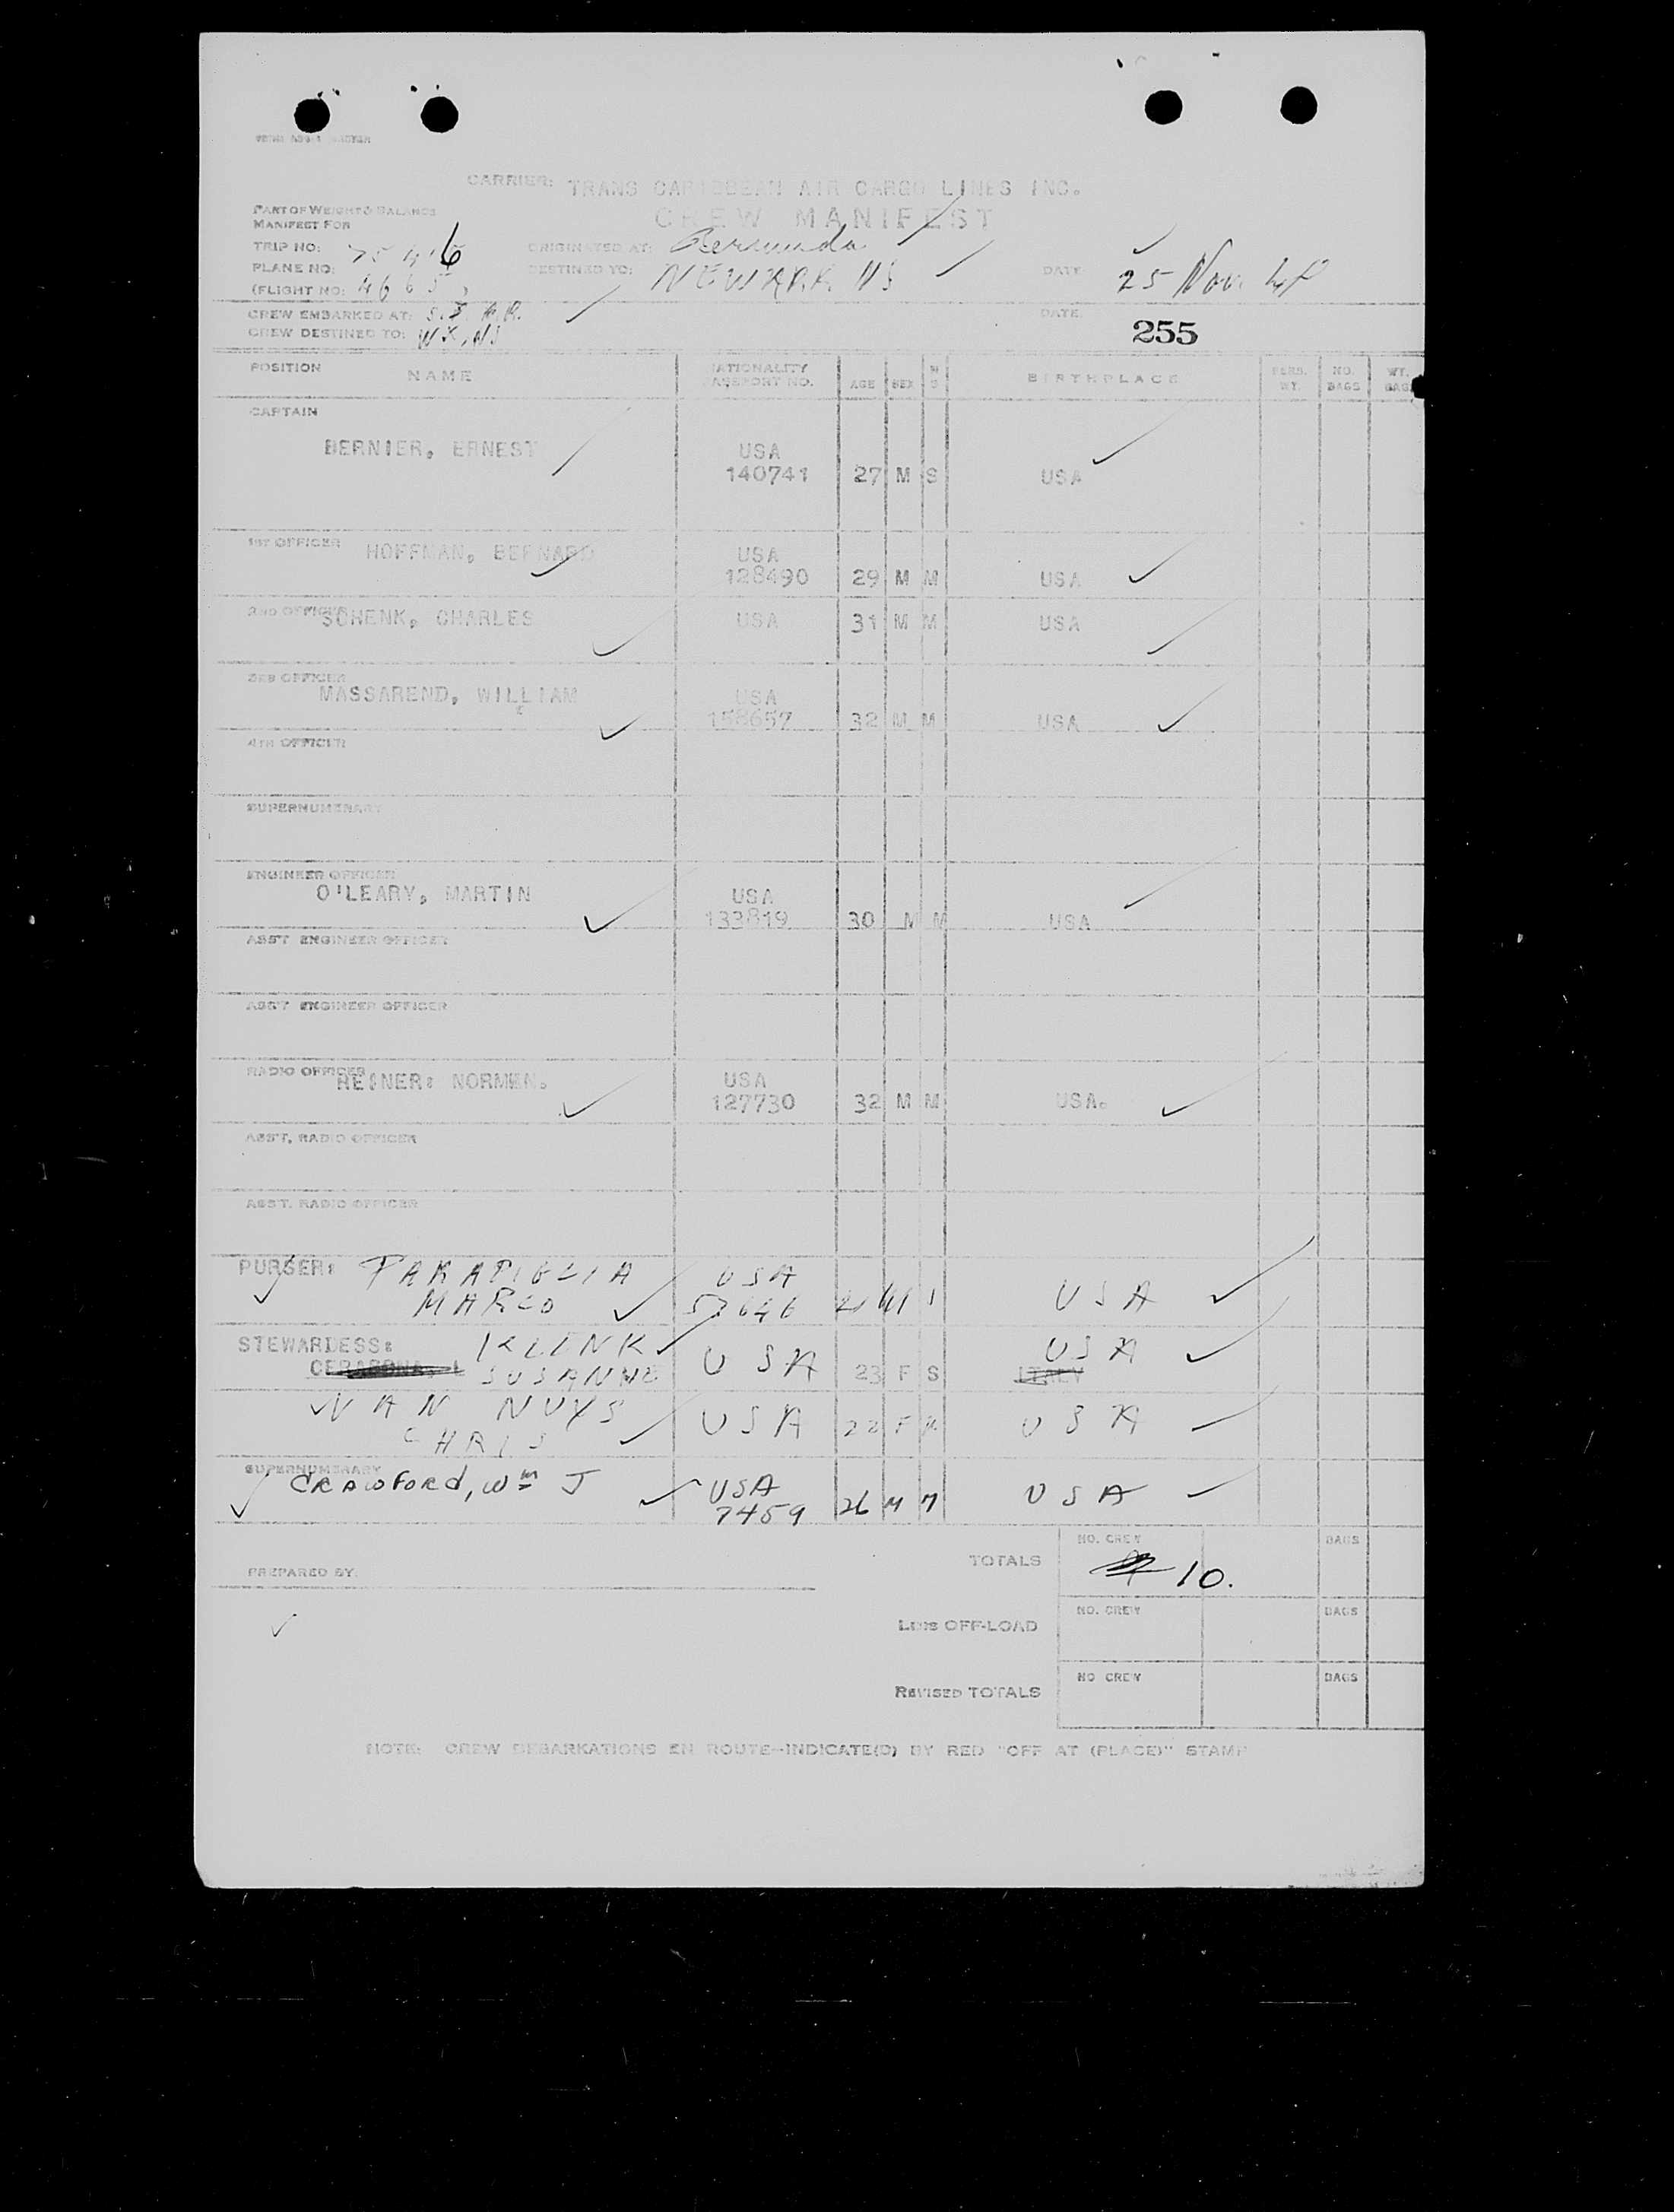 CARRIER: TRANS CARIBBEAN AIR CARGO LINES INC.
PART OF WEIGHT & BALANCE
MANIFEST FOR
CREW MANIFEST
TRIP NO:
ORIGINATED AT: Bermuda
PLANE NO:
DESTINED TO: NEWARK NJ
DATE 25 Nov. 48
(FLIGHT NO:
CREW EMBARKED AT:
DATE:
CREW DESTINED TO:
255
POSITION NAME NATIONALITY PASSPORT NO. AGE SEX M S BIRTHPLACE PERS. WT. NO. BAGS WT. BAGS
CAPTAIN
BERNIER, ERNEST USA
140741 27 M S USA
1ST OFFICER HOFFMAN, BERNARD USA
128490 29 M M USA
2ND OFFICER SCHENK, CHARLES USA 31 M M USA
3RD OFFICER
MASSAREND, WILLIAM USA
158657 32 M M USA
4TH OFFICER
SUPERNUMERARY
ENGINEER OFFICER
O'LEARY, MARTIN USA
133819 30 M M USA
ASS'T ENGINEER OFFICER
ASS'T ENGINEER OFFICER
RADIO OFFICER
REINER: NORMAN. USA
127730 32 M M USA.
ASS'T. RADIO OFFICER
ASS'T. RADIO OFFICER
PURSER: PARAPIGLIA USA
MARCO 57646 M USA
STEWARDESS: KLINK USA
SUSANNE USA 23 F S
VAN NUYS USA 22 F USA
CHRIS
SUPERNUMERARY
CRAWFORD, Wm J USA
7459 26 M M USA
TOTALS NO. CREW 10. BAGS
PREPARED BY:
LESS OFF-LOAD NO. CREW BAGS
REVISED TOTALS NO CREW BAGS
NOTE: CREW DEBARKATIONS EN ROUTE--INDICATE(D) BY RED "OFF AT (PLACE)" STAMP